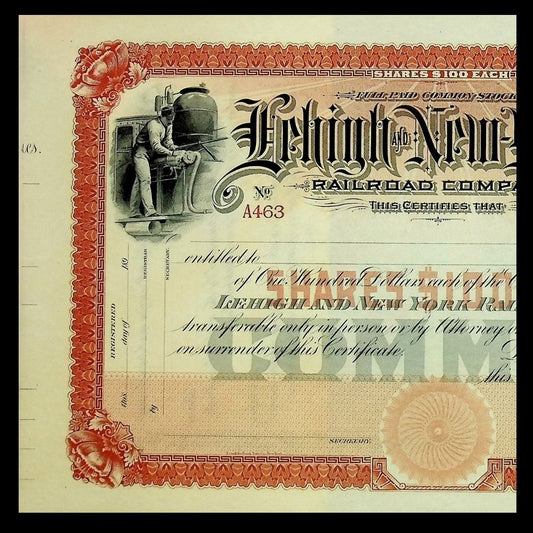 SHARES $100 EACH
FULL PAID COMMON STOCK
Lehigh AND New-
RAILROAD COMPA
THIS CERTIFIES THAT
No
A463
ues.
entitled to
of One Hundred Dollars each of the
SHARES $100
LEHIGH AND NEW YORK RAI
transferable only in person or by Attorney o
on surrender of this Certificate.
COMM
this
REGISTERED
this day of 189
by
REGISTRAR
SECRETARY.
SECRETARY.